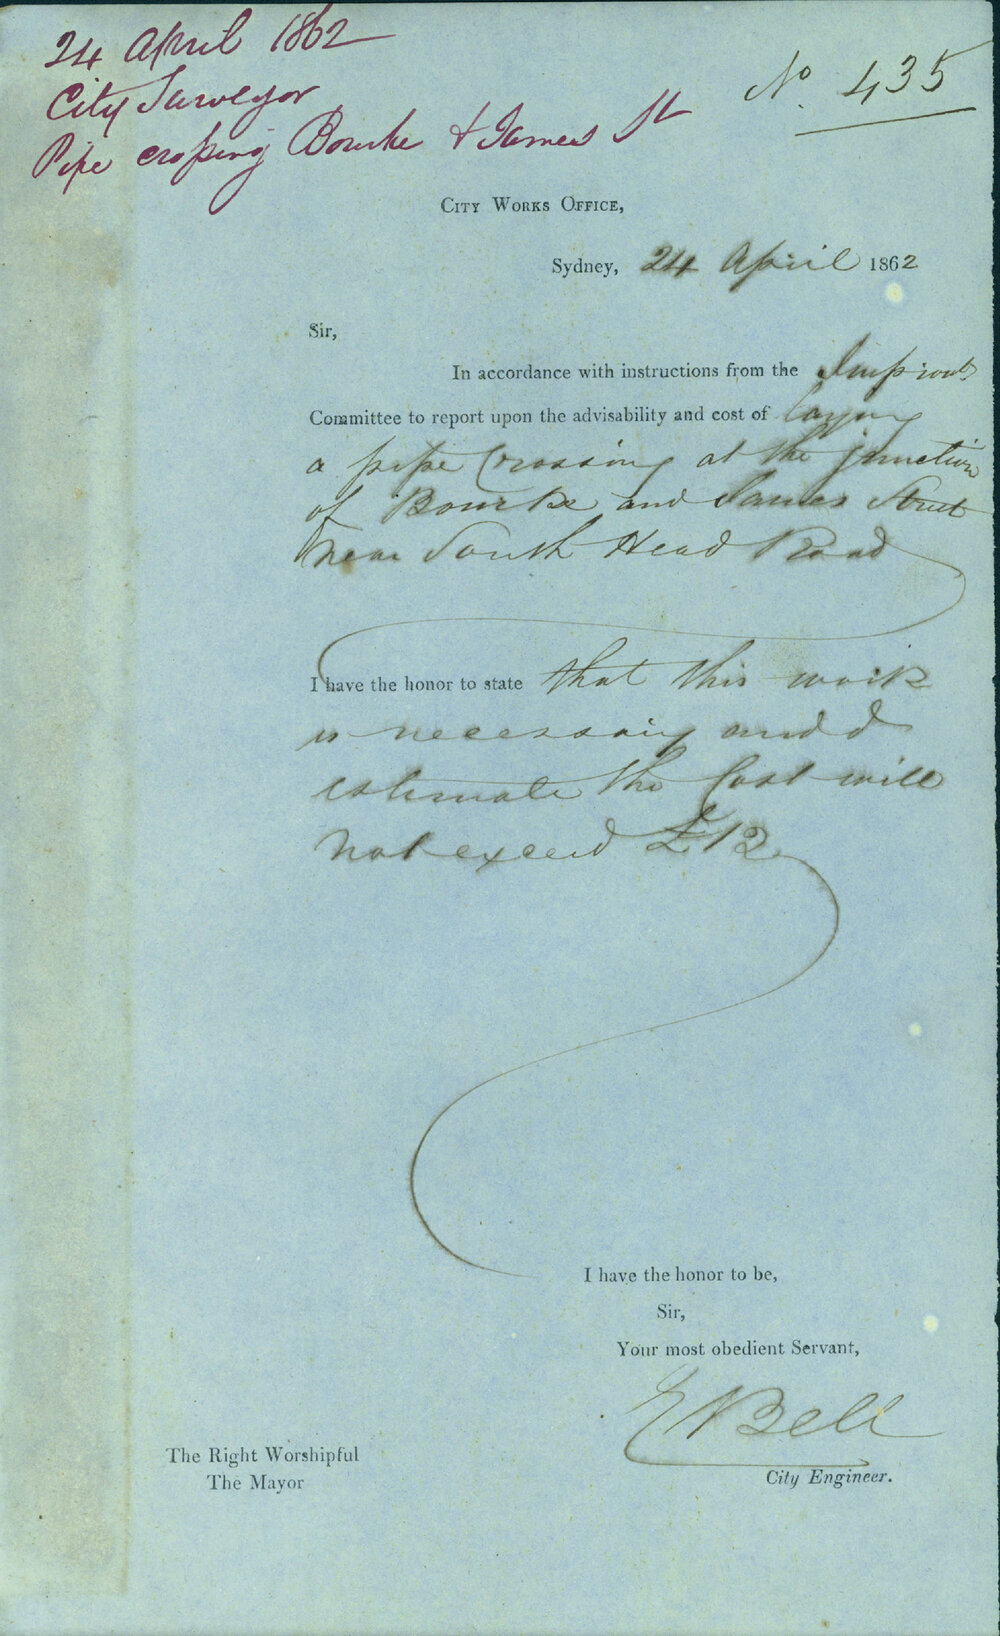 24 April 1862
City Surveyor
Pipe crossing Bourke & James St
No. 435
City Works Office,
Sydney, 24 April 1862
Sir,
In accordance with instructions from the Improvts
Committee to report upon the advisability and cost of laying
a pipe Crossing at the junction
of Bourke and James Street
near South Head Road
I have the honor to state that this work
is necessary and I
estimate the Cost will
not exceed £12
I have the honor to be,
Sir,
Your most obedient Servant,
E Bell
City Engineer.
The Right Worshipful
The Mayor